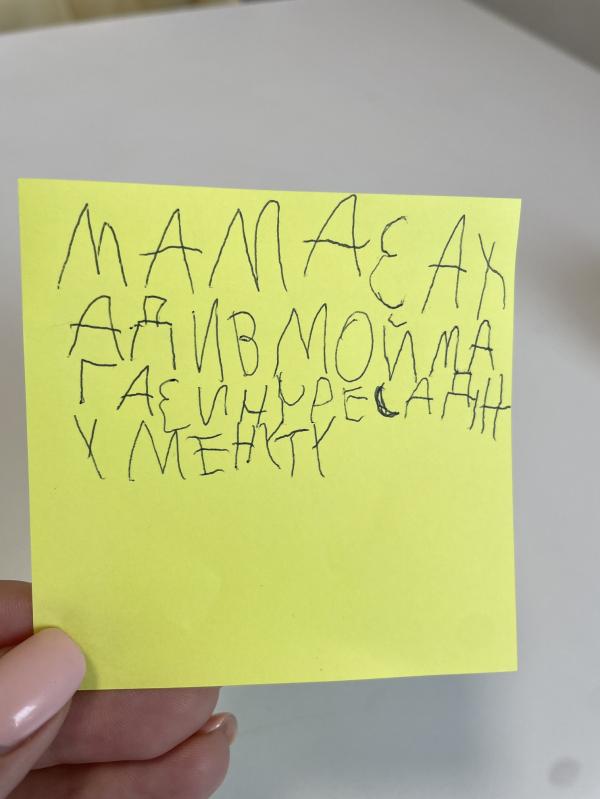 МАМА ЗАХ
АДИ В МОЙ МА
ГАЗИН ЧРЕС АДН
У МЕНУТУ